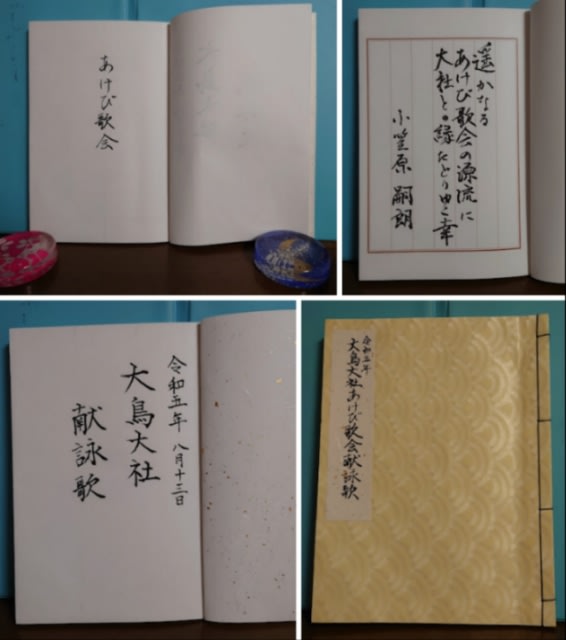 あけび歌会
遥かなる
あけび歌会の源流に
大社との縁たどりゆく幸
小笠原嗣朗
令和五年 八月十三日
大鳥大社
献詠歌
令和五年
大鳥大社あけび歌会献詠歌